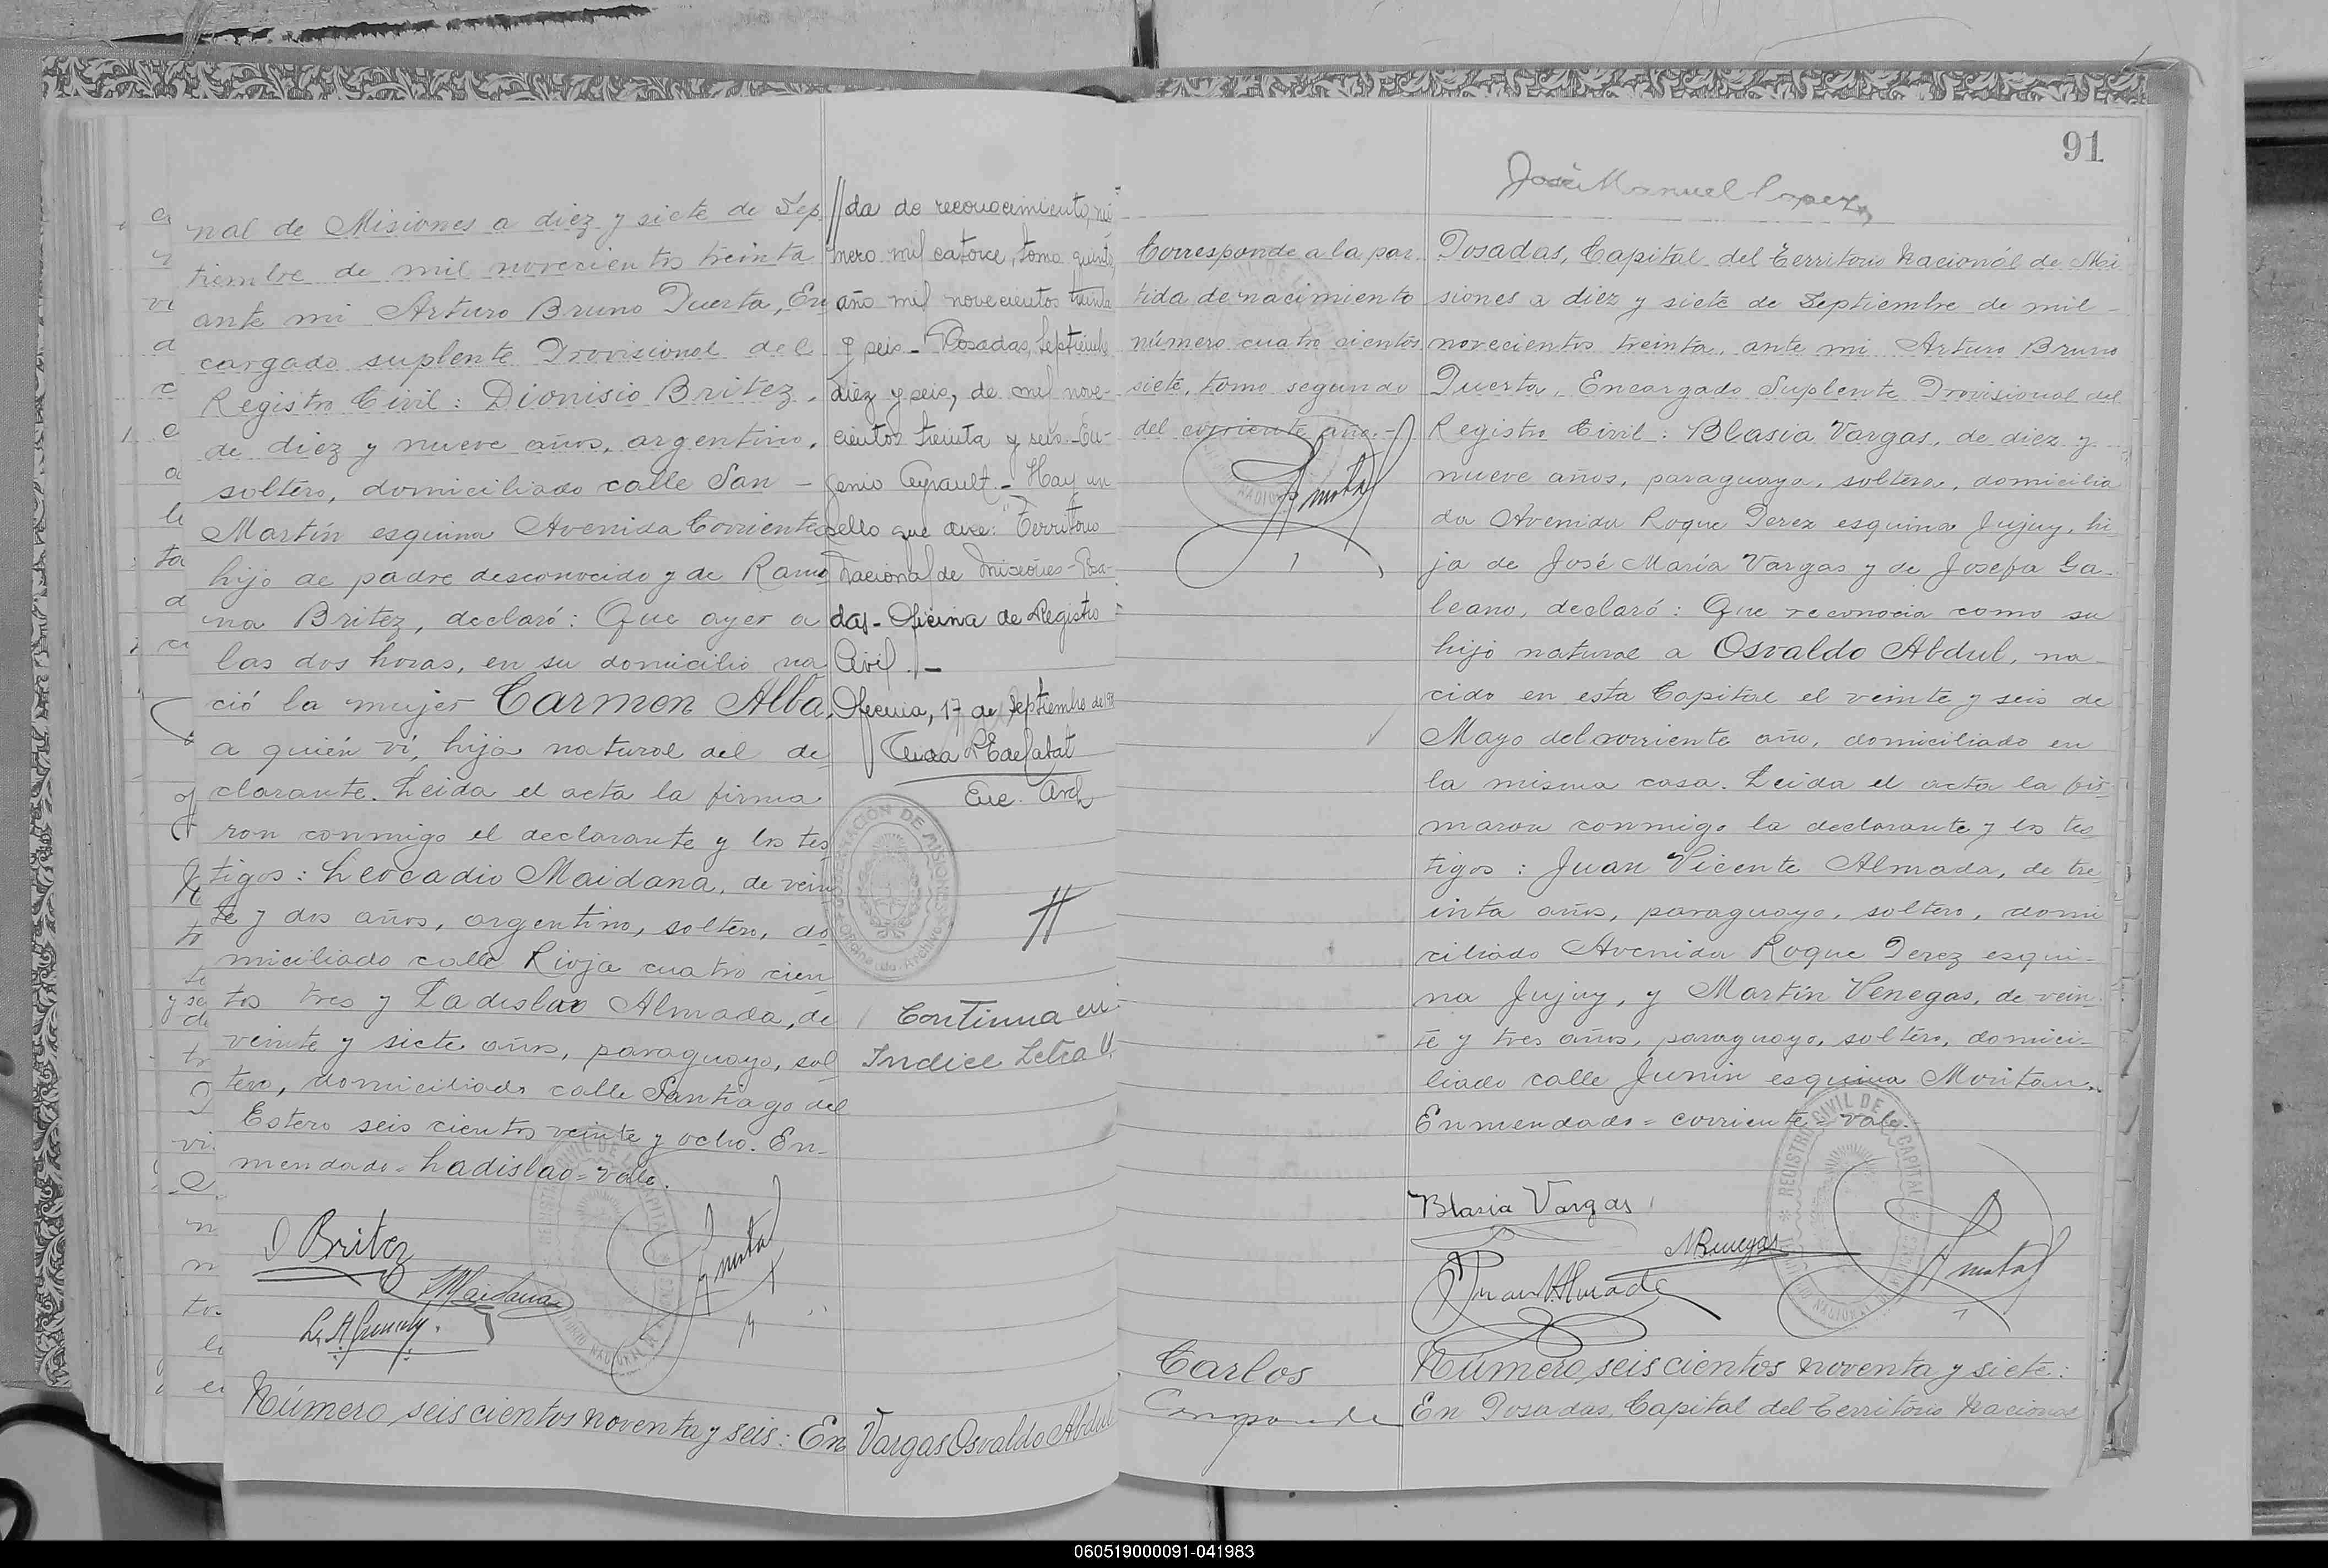 nal de Misiones a diez y siete de Sep
tiembre de mil novecientos treinta
ante mi Arturo Bruno Puerta, En
cargado suplente Provisional del
Registro Civil: Dionisio Britez,
de diez y nueve años, argentino,
soltero, domiciliado calle San -
Martín esquina Avenida Corrientes
hijo de padre desconocido y de Ramo
na Britez, declaró: Que ayer a
las dos horas, en su domicilio na
ció la mujer Carmen Alba,
a quién ví, hija natural del de
clarante. Leida el acta la firma
ron conmigo el declarante y los tes
tigos: Leocadio Maidana, de vein
te y dos años, argentino, soltero, do
miciliado calle Rioja cuatro cien
tos tres y Ladislao Almada, de
veinte y siete años, paraguayo, sol
tero, domiciliado calle Santiago del
Estero seis cientos veinte y ocho. En-
mendado = Ladislao = vale.
D Britez
LMaidana
Número seiscientos noventa y seis: En
//da de reconocimiento, nú
mero mil catorce, tomo quinto,
año mil novecientos treinta
y seis - Posadas, Septiembre
diez y seis, de mil nove-
cientos treinta y seis. - Eu-
genio - Hay un
sello que dice: "Territorio
Nacional de Misiones - Posa-
das - Oficina de Registro
Civil. -
Oficina, 17 de Septiembre de
Enc. Arch
GOBERNACIÓN DE MISIONES
//
Continua en
Indice Letra V.
Vargas Osvaldo Abdul
91
José Manuel Lopez
Corresponde a la par-
tida de nacimiento
número cuatro cientos
siete, tomo segundo
del corriente año. -
Posadas, Capital del Territorio Nacional de Mi
siones a diez y siete de Septiembre de mil -
novecientos treinta, ante mi Arturo Bruno
Puerta, Encargado Suplente Provisional del
Registro Civil: Blasia Vargas, de diez y
nueve años, paraguaya, soltera, domicilia
da Avenida Roque Perez esquina Jujuy, hi
ja de José María Vargas y de Josefa Ga-
leano, declaró: Que reconocia como su
hijo natural a Osvaldo Abdul, na-
cido en esta Capital el veinte y seis de
Mayo del corriente año, domiciliado en
la misma casa. Leida el acta la fir-
maron conmigo la declarante y los tes
tigos: Juan Vicente Almada, de tre
inta años, paraguayo, soltero, domi
ciliado Avenida Roque Perez esqui-
na Jujuy, y Martín Venegas, de vein-
te y tres años, paraguayo, soltero, domici-
liado calle Junin esquina
Enmendado = corriente = vale.
REGISTRO CIVIL DE LA CAPITAL
Blasia Vargas
MVenegas
Juan V. Almada
Carlos
Número seiscientos noventa y siete:
En Posadas, Capital del Territorio Nacional
060519000091-041983